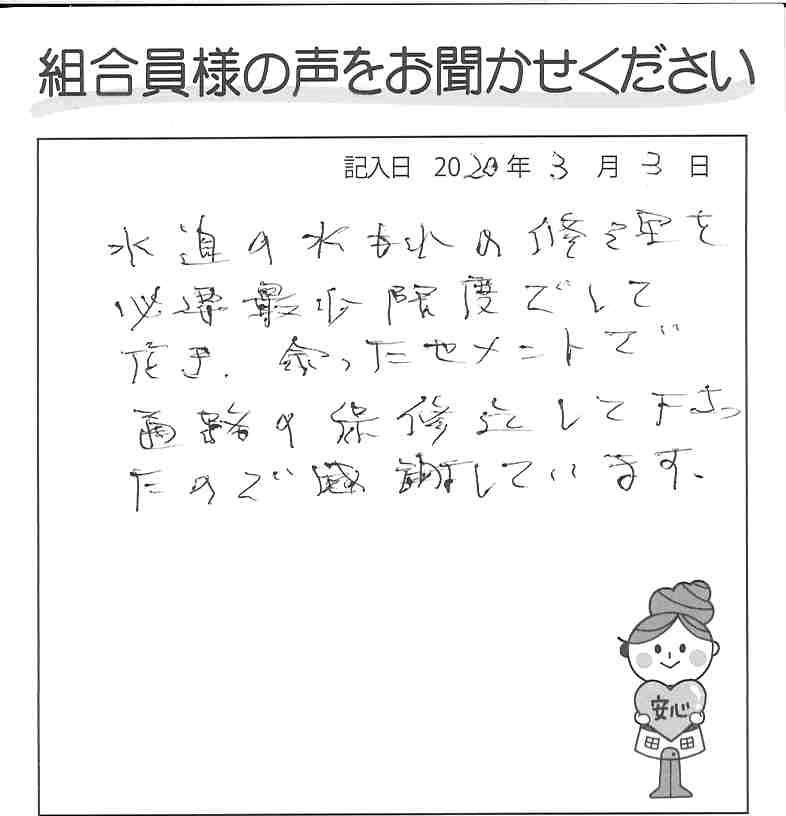 組合員様の声をお聞かせください
記入日 2020年 3月 3日
水道の水もれの修理を
必要最小限度でして
頂き、余ったセメントで
通路の補修迄して下さっ
たので感謝しています。
安心